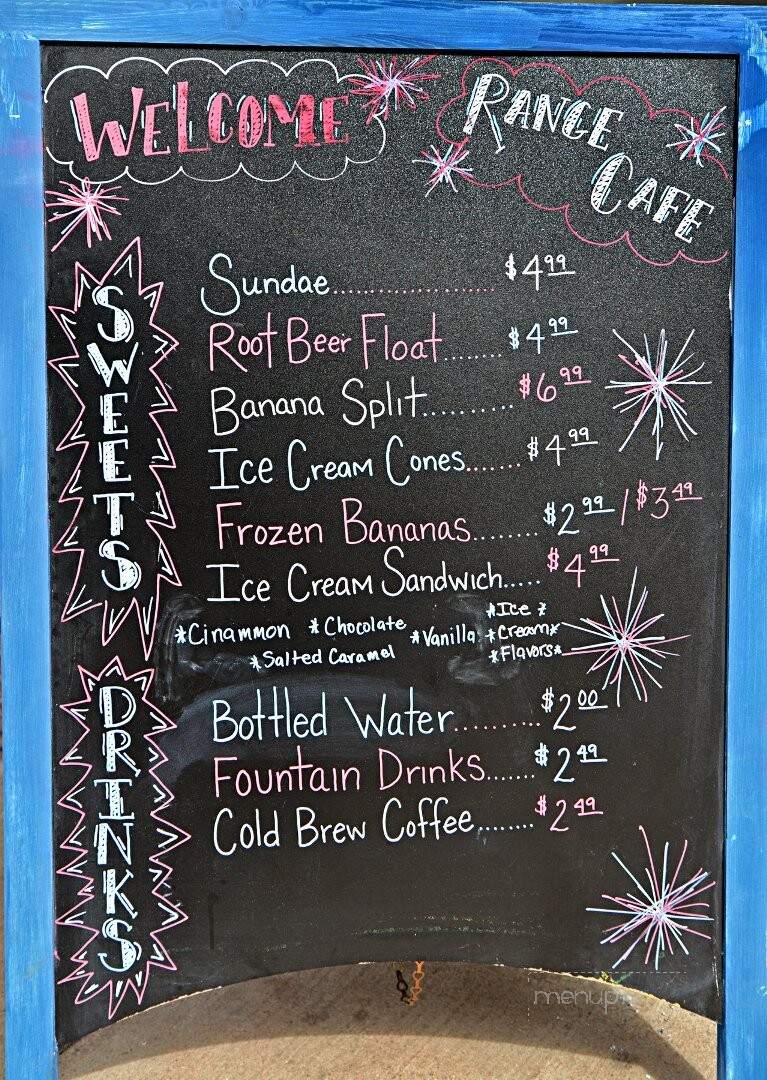 WELCOME
RANGE
CAFE
SWEETS
Sundae.................... $4.99
Root Beer Float........ $4.99
Banana Split.......... $6.99
Ice Cream Cones....... $4.99
Frozen Bananas........ $2.99 / $3.49
Ice Cream Sandwich..... $4.99
*Cinammon *Chocolate *Vanilla
*Salted Caramel
*Ice*
*Cream*
*Flavors*
DRINKS
Bottled Water.......... $2.00
Fountain Drinks...... $2.49
Cold Brew Coffee........ $2.49
menupi